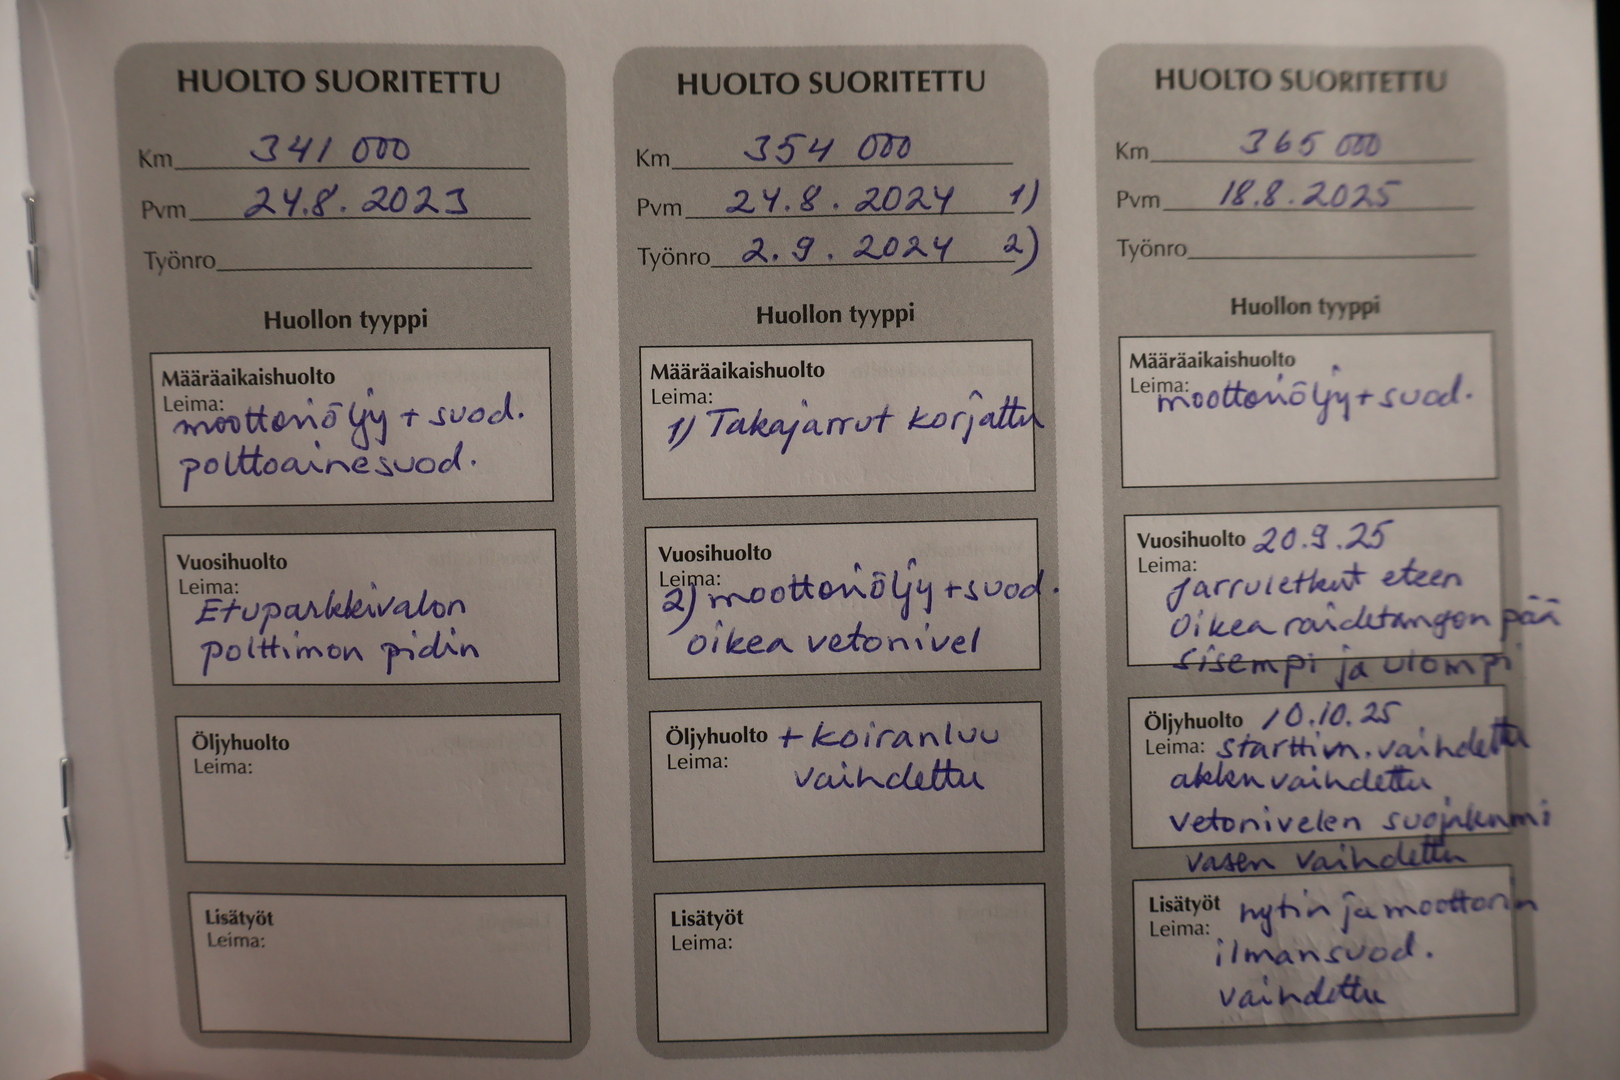 HUOLTO SUORITETTU
Km 341 000
Pvm 24.8.2023
Työnro
Huollon tyyppi
Määräaikaishuolto
Leima:
moottoriöljy + suod.
polttoainesuod.
Vuosihuolto
Leima:
Etuparkkivalon
polttimon pidin
Öljyhuolto
Leima:
Lisätyöt
Leima:
HUOLTO SUORITETTU
Km 354 000
Pvm 24.8.2024 1)
Työnro 2.9.2024 2)
Huollon tyyppi
Määräaikaishuolto
Leima:
1) Takajarrut korjattu
Vuosihuolto
Leima:
2) moottoriöljy + suod.
oikea vetonivel
Öljyhuolto + koiranluu
Leima: vaihdettu
Lisätyöt
Leima:
HUOLTO SUORITETTU
Km 365 000
Pvm 18.8.2025
Työnro
Huollon tyyppi
Määräaikaishuolto
Leima:
moottoriöljy + suod.
Vuosihuolto 20.9.25
Leima:
Jarruletkut eteen
Oikea raidetangon pää
sisempi ja ulompi
Öljyhuolto 10.10.25
Leima: starttim. vaihdettu
akku vaihdettu
vetonivelen suojakumi
vasen vaihdettu
Lisätyöt hytin ja moottorin
Leima: ilmansuod.
vaihdettu